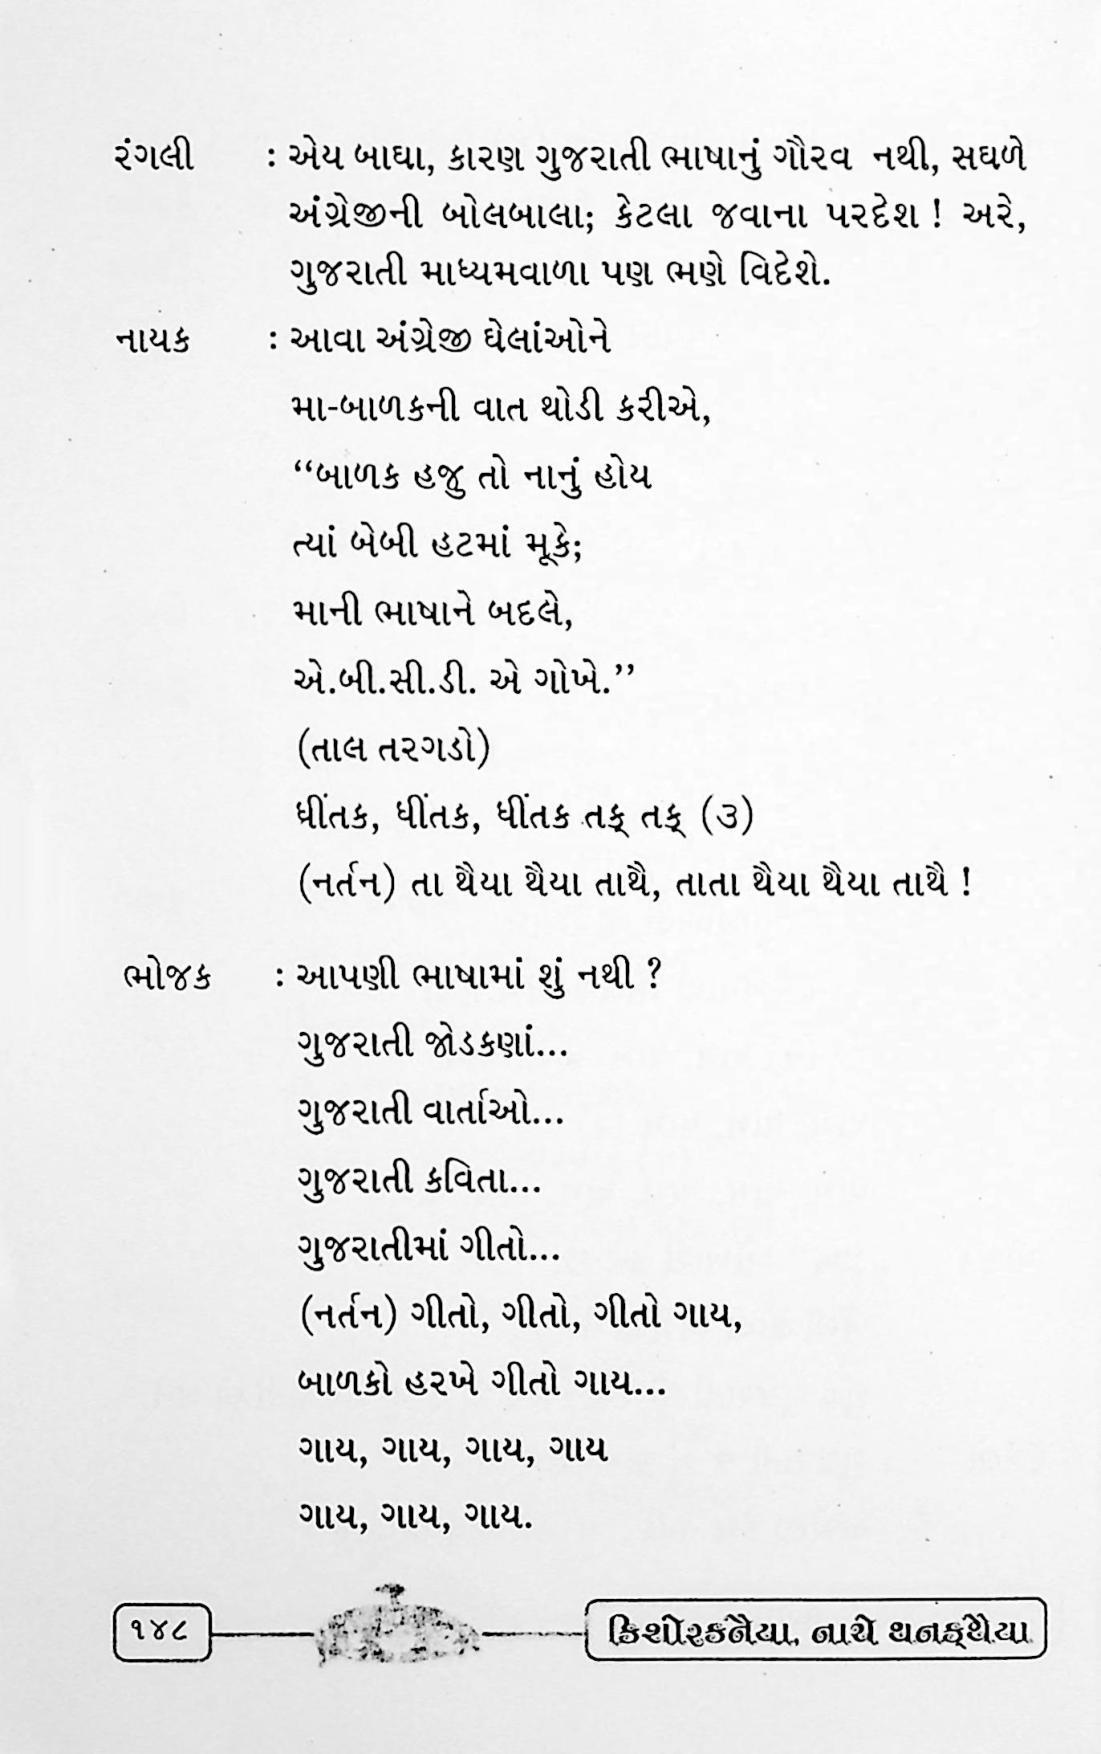 રંગલી : એય બાઘા, કારણ ગુજરાતી ભાષાનું ગૌરવ નથી, સઘળે
અંગ્રેજીની બોલબાલા; કેટલા જવાના પરદેશ ! અરે,
ગુજરાતી માધ્યમવાળા પણ ભણે વિદેશે.
નાયક : આવા અંગ્રેજી ઘેલાંઓને
મા-બાળકની વાત થોડી કરીએ,
“બાળક હજુ તો નાનું હોય
ત્યાં બેબી હટમાં મૂકે;
માની ભાષાને બદલે,
એ.બી.સી.ડી. એ ગોખે.”
(તાલ તરગડો)
ધીંતક, ધીંતક, ધીંતક તક્ તક્ (૩)
(નર્તન) તા થૈયા થૈયા તાથૈ, તાતા થૈયા થૈયા તાથૈ !
ભોજક : આપણી ભાષામાં શું નથી ?
ગુજરાતી જોડકણાં...
ગુજરાતી વાર્તાઓ...
ગુજરાતી કવિતા...
ગુજરાતીમાં ગીતો...
(નર્તન) ગીતો, ગીતો, ગીતો ગાય,
બાળકો હરખે ગીતો ગાય...
ગાય, ગાય, ગાય, ગાય
ગાય, ગાય, ગાય.
૧૪૮ કિશોરકનૈયા, નાચે થનક્થૈયા